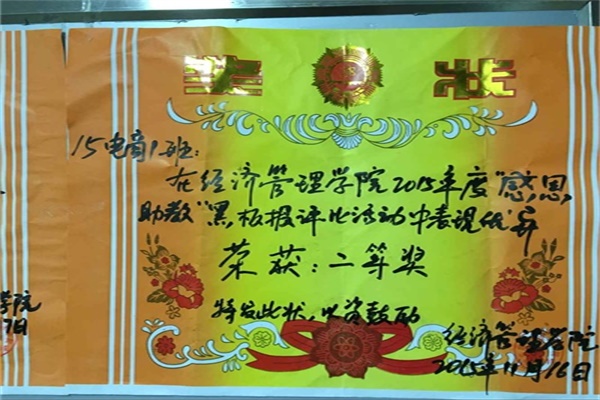 奖状
15电商1班:
在经济管理学院2015年度"感恩,
助教"黑板报评比活动中表现优异
荣获:二等奖
特发此状,以资鼓励
经济管理学院
2015年11月16日
学院
日